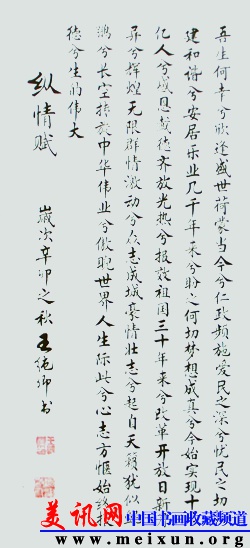 吾生何幸兮欣逢盛世荷蒙当今兮仁政频施爱民之深兮忧民之切
建和谐兮安居乐业几千年来兮盼之何切梦想成真兮今始实现十
亿人兮感恩戴德齐放光热兮报效祖国三十年来兮改革开放日新
异兮辉煌无限群情激动兮众志成城豪情壮志兮起自天籁犹似
鸿兮长空抟击中华伟业兮傲睨世界人生际此兮心志方惬始
德兮生的伟大
纵情赋
岁次辛卯之秋王绝卿书
美讯网 中国书画收藏频道
www.meixun.org